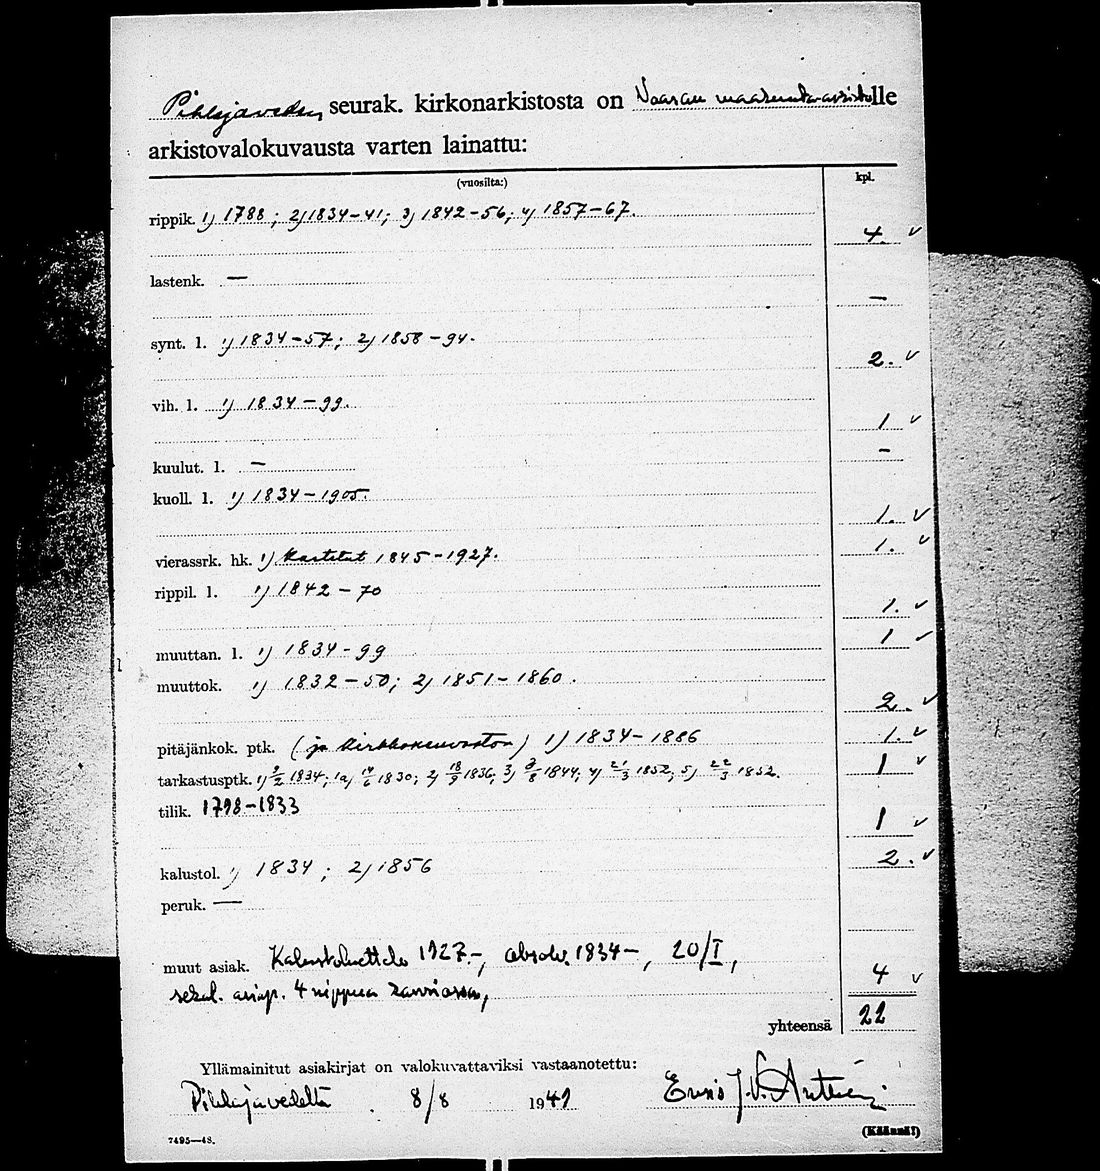 Pihlajaveden seurak. kirkonarkistosta on Vaasan maakunta-arkistolle
arkistovalokuvausta varten lainattu:
(vuosilta:) kpl.
rippik. 1) 1788; 2) 1834-41; 3) 1842-56; 4) 1857-67. 4. ✓
lastenk. — —
synt. l. 1) 1834-57; 2) 1858-94. 2. ✓
vih. l. 1) 1834-99. 1 ✓
kuulut. l. — -
kuoll. l. 1) 1834-1905. 1. ✓
vierassrk. hk. 1) 1845-1927. 1. ✓
rippil. l. 1) 1842-70 1. ✓
muuttan. l. 1) 1834-99 1 ✓
muuttok. 1) 1832-50; 2) 1851-1860. 2. ✓
pitäjänkok. ptk. (ja kirkkoneuvoston) 1) 1834-1886 1. ✓
tarkastusptk. 1) 9/2 1834; 1a) 14/6 1830; 2) 18/9 1836; 3) 8/8 1844; 4) 21/3 1852; 5) 22/3 1852. 1 ✓
tilik. 1798-1833 1 ✓
kalustol. 1) 1834; 2) 1856 2. ✓
peruk. —
muut asiak. Kalustoluettelo 1927-, absolv. 1834-, 20/I, 4 ✓
sekal. asiap. 4 nippua
yhteensä 22
Yllämainitut asiakirjat on valokuvattaviksi vastaanotettu:
Pihlajavedeltä. 8/8 1949 J.V.
7495—48. (Käännä!)